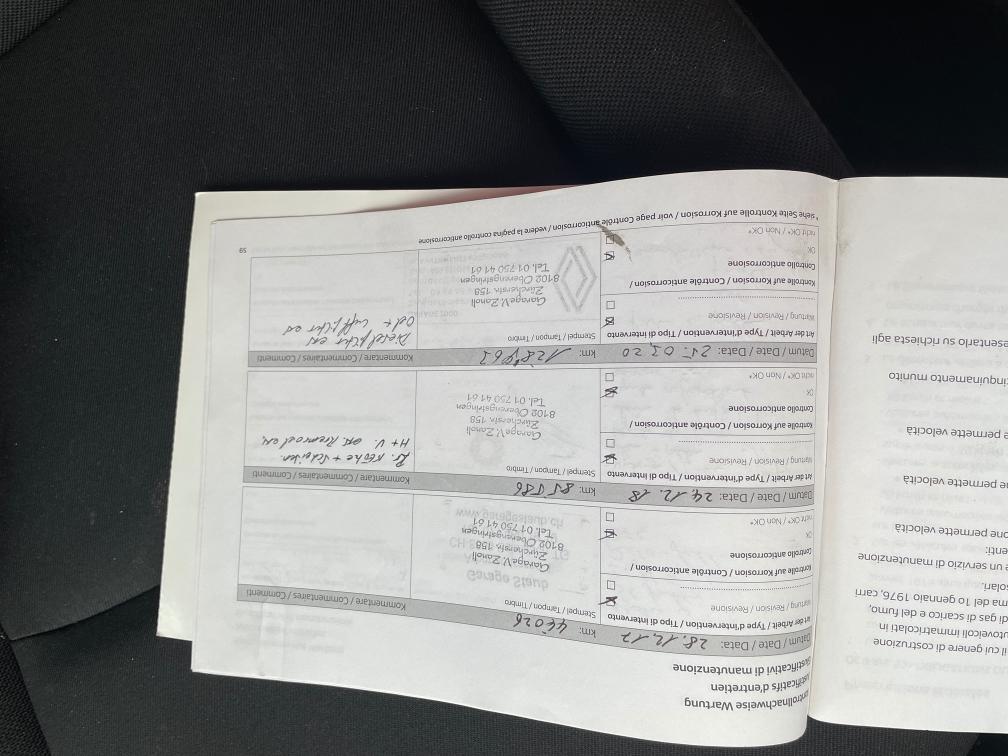 ontrollnachweise Wartung
ustificatifs d'entretien
Giustificativi di manutenzione
Datum / Date / Data: 28.12.17 km: 46026
Art der Arbeit / Type d'intervention / Tipo di intervento
Stempel / Tampon / Timbro
Kommentare / Commentaires / Commenti
Wartung / Revision / Revisione
Kontrolle auf Korrosion / Contrôle anticorrosion /
Controllo anticorrosione
OK
nicht OK* / Non OK*
Garage Staub
www.garagestaub.ch
Garage V. Zanoli
Zürcherstr. 158
8102 Oberengstringen
Tel. 01 750 41 61
Datum / Date / Data: 24.12.18 km: 85586
Art der Arbeit / Type d'intervention / Tipo di intervento
Stempel / Tampon / Timbro
Kommentare / Commentaires / Commenti
Wartung / Revision / Revisione
Kontrolle auf Korrosion / Contrôle anticorrosion /
Controllo anticorrosione
OK
nicht OK* / Non OK*
Garage V. Zanoli
Zürcherstr. 158
8102 Oberengstringen
Tel. 01 750 41 61
+ Scheiben
H + V.
Datum / Date / Data: 25.03.20 km:
Art der Arbeit / Type d'intervention / Tipo di intervento
Stempel / Tampon / Timbro
Kommentare / Commentaires / Commenti
Wartung / Revision / Revisione
Kontrolle auf Korrosion / Contrôle anticorrosion /
Controllo anticorrosione
OK
nicht OK* / Non OK*
Garage V. Zanoli
Zürcherstr. 158
8102 Oberengstringen
Tel. 01 750 41 61
*siehe Seite Kontrolle auf Korrosion / voir page Contrôle anticorrosion / vedere la pagina controllo anticorrosione
59
il cui genere di costruzione
utoveicoli immatricolati in
di gas di scarico e del fumo,
ma del 1o gennaio 1976, carri
solari.
e un servizio di manutenzione
enti:
one permette velocità
ne permette velocità
e permette velocità
inquinamento munito
esentarlo su richiesta agli